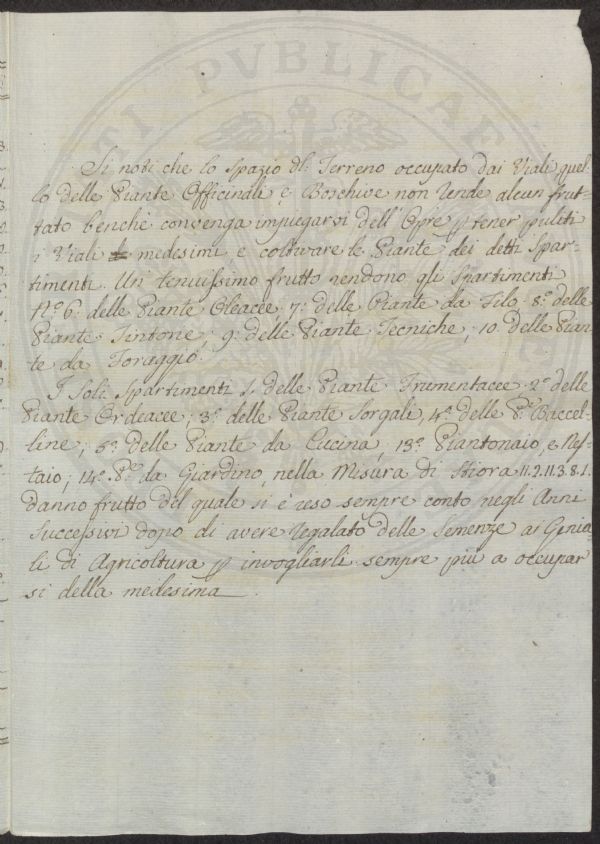 Si noti che lo Spazio dl: Terreno occupato dai Viali quel-
lo delle Piante Officinali, e Boschive non rende alcun frut-
tato benchè convenga impiegarvi dell'Opre p tener puliti
i Viali medesimi e coltivare le Piante dei detti Spar-
timenti. Un tenuissimo frutto rendono gli Spartimenti
N.º 6. delle Piante Oleacee, 7.º delle Piante da Filo. 8.º delle
Piante Tintorie, 9.º delle Piante Tecniche, 10. delle Pian-
te da Foraggio.
I Soli Spartimenti 1. delle Piante Frumentacee. 2.º delle
Piante Ordeacee; 3.º delle Piante Sorgali, 4.º delle P.te Baccel-
line; 5.º delle Piante da Cucina, 13.º Piantonaio, e Nes-
taio, 14.º P.te da Giardino, nella Misura di Stiora 11.2.11.3.8.1.
danno frutto del quale si è reso sempre conto negli Anni
Successivi dopo di avere regalato delle Semenze ai Genia-
li di Agricoltura p invogliarli sempre più a occupar
si della medesima
PVBLICAE